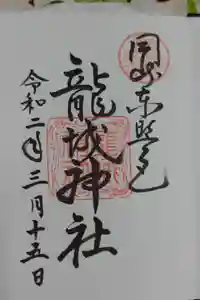 岡崎東照宮
龍城神社
令和二年三月十五日